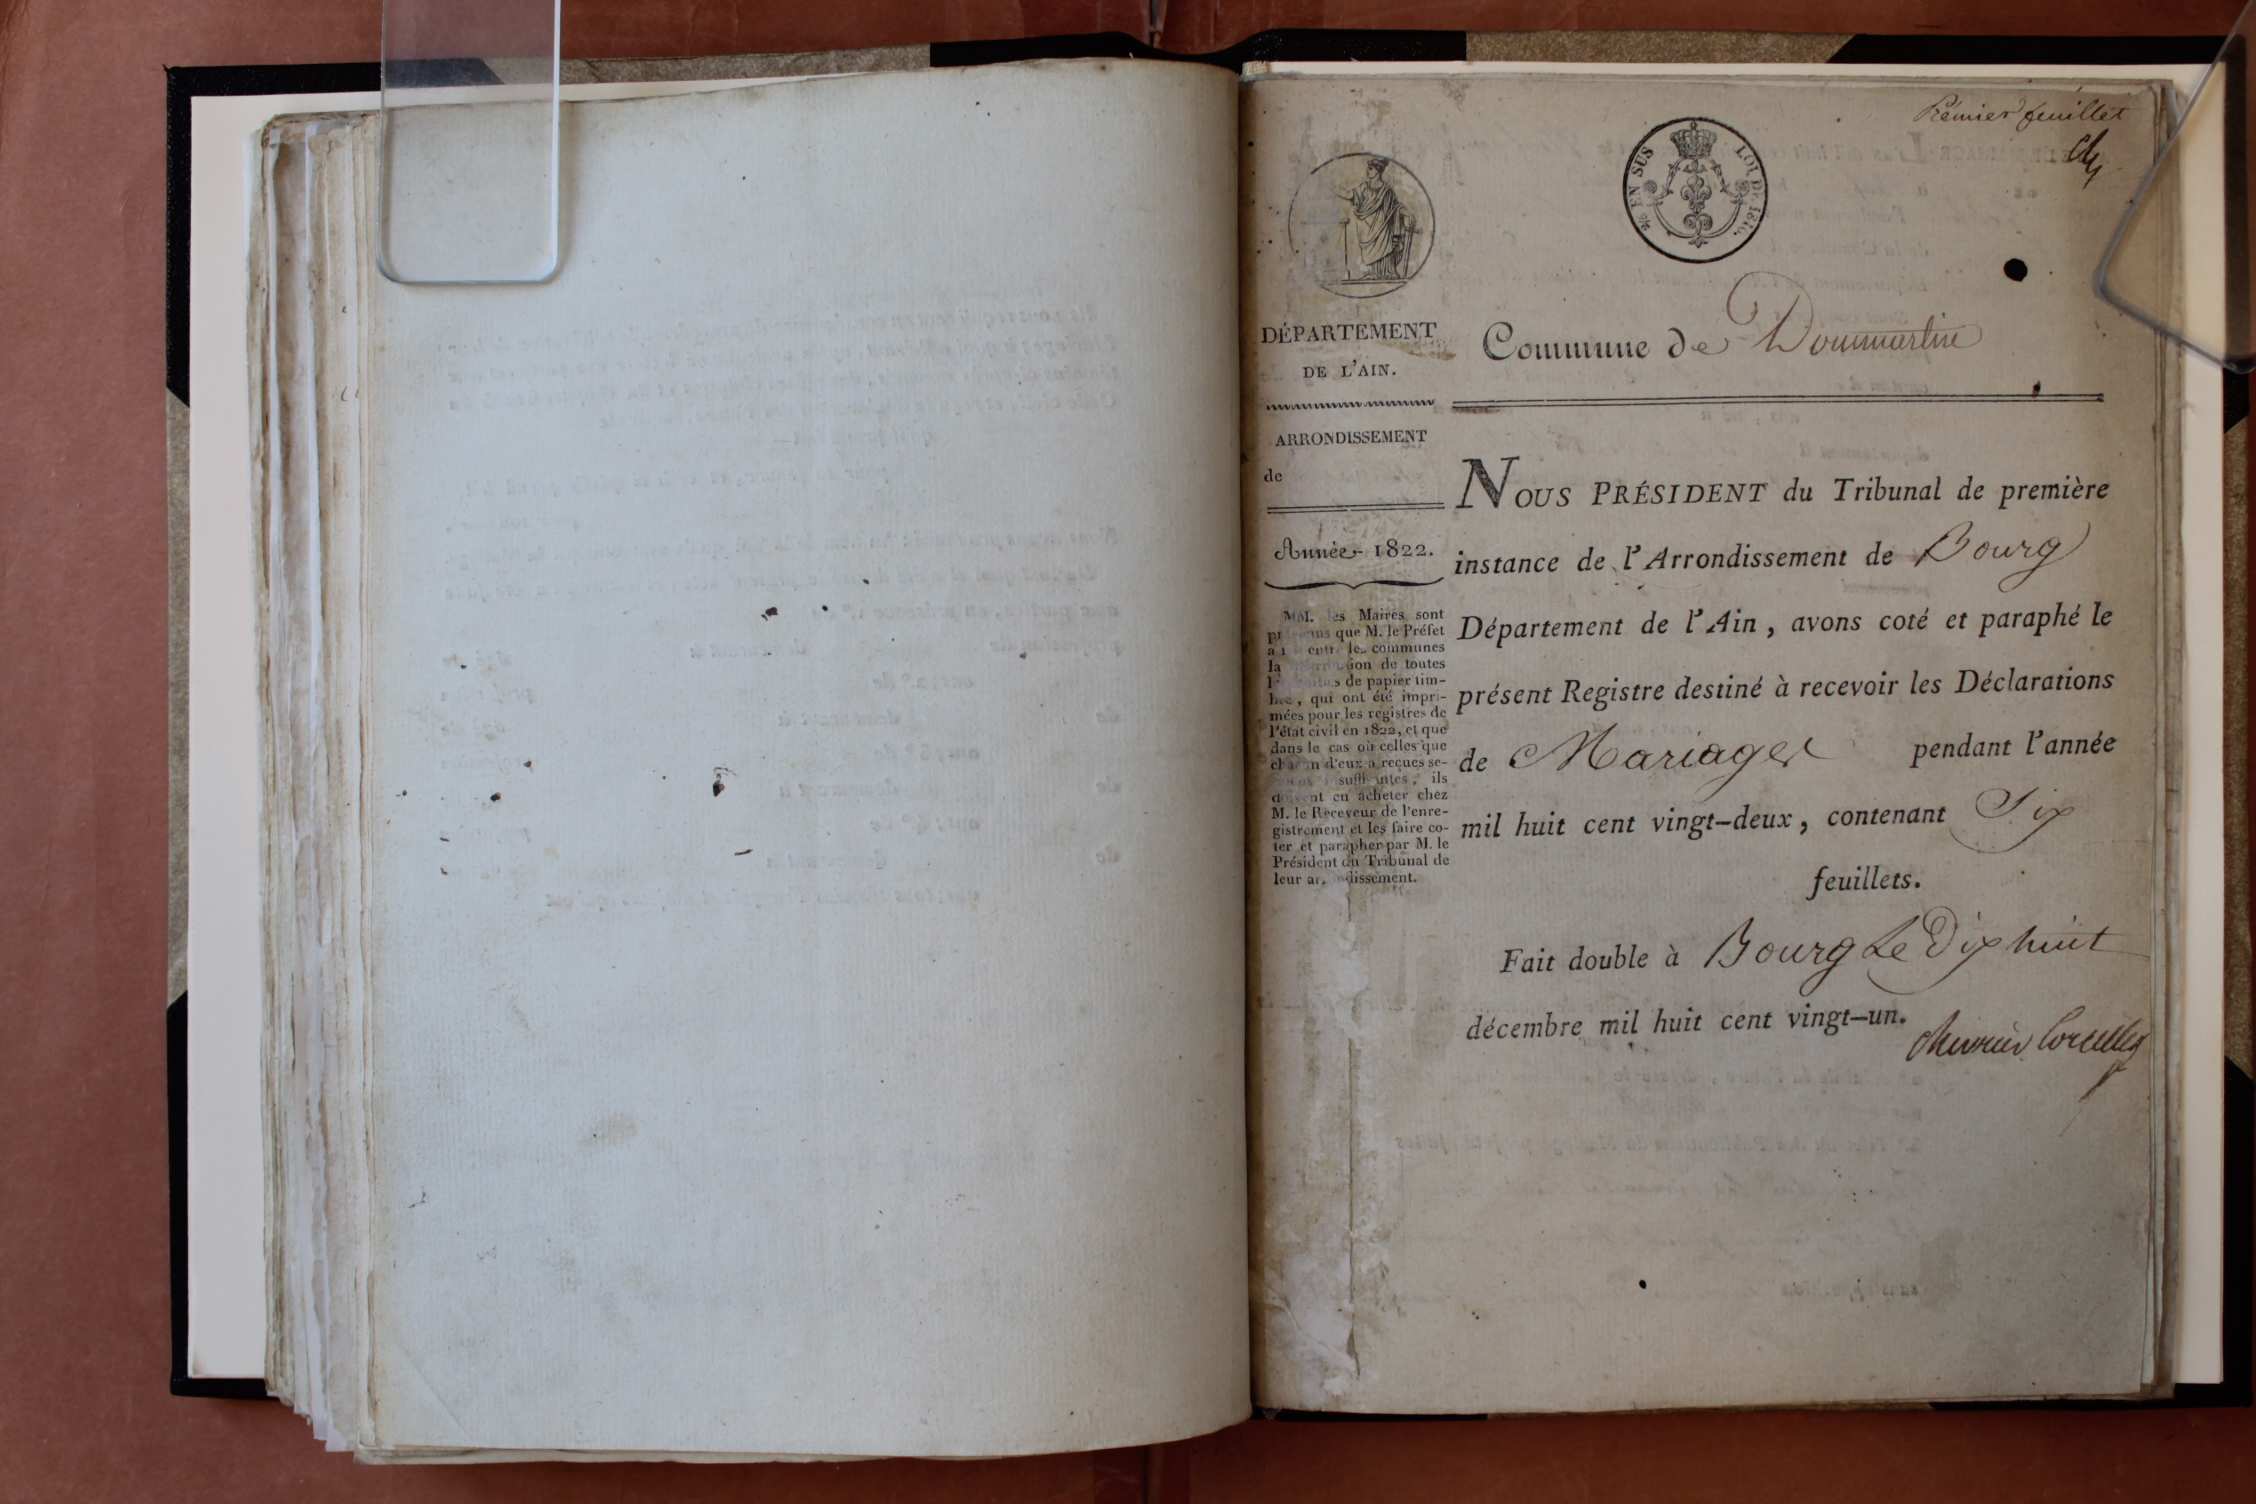 Premier feuillet
EN SUS LOI DE 1816.
DÉPARTEMENT
DE L'AIN.
ARRONDISSEMENT
de
Année 1822.
MM. les Maires sont
que M. le Préfet
entre les communes
la de toutes
de papier tim-
, qui ont été impri-
mées pour les registres de
l'état civil en 1822, et que
dans le cas où celles que
chacun d'eux a reçues se-
insuffisantes, ils
doivent en acheter chez
M. le Receveur de l'enre-
gistrement et les faire co-
ter et parapher par M. le
Président du Tribunal de
leur arrondissement.
Commune de Dommartin
NOUS PRÉSIDENT du Tribunal de première
instance de l'Arrondissement de Bourg
Département de l'Ain, avons coté et paraphé le
présent Registre destiné à recevoir les Déclarations
de Mariages pendant l'année
mil huit cent vingt-deux, contenant Six
feuillets.
Fait double à Bourg Le Dix huit
décembre mil huit cent vingt-un.